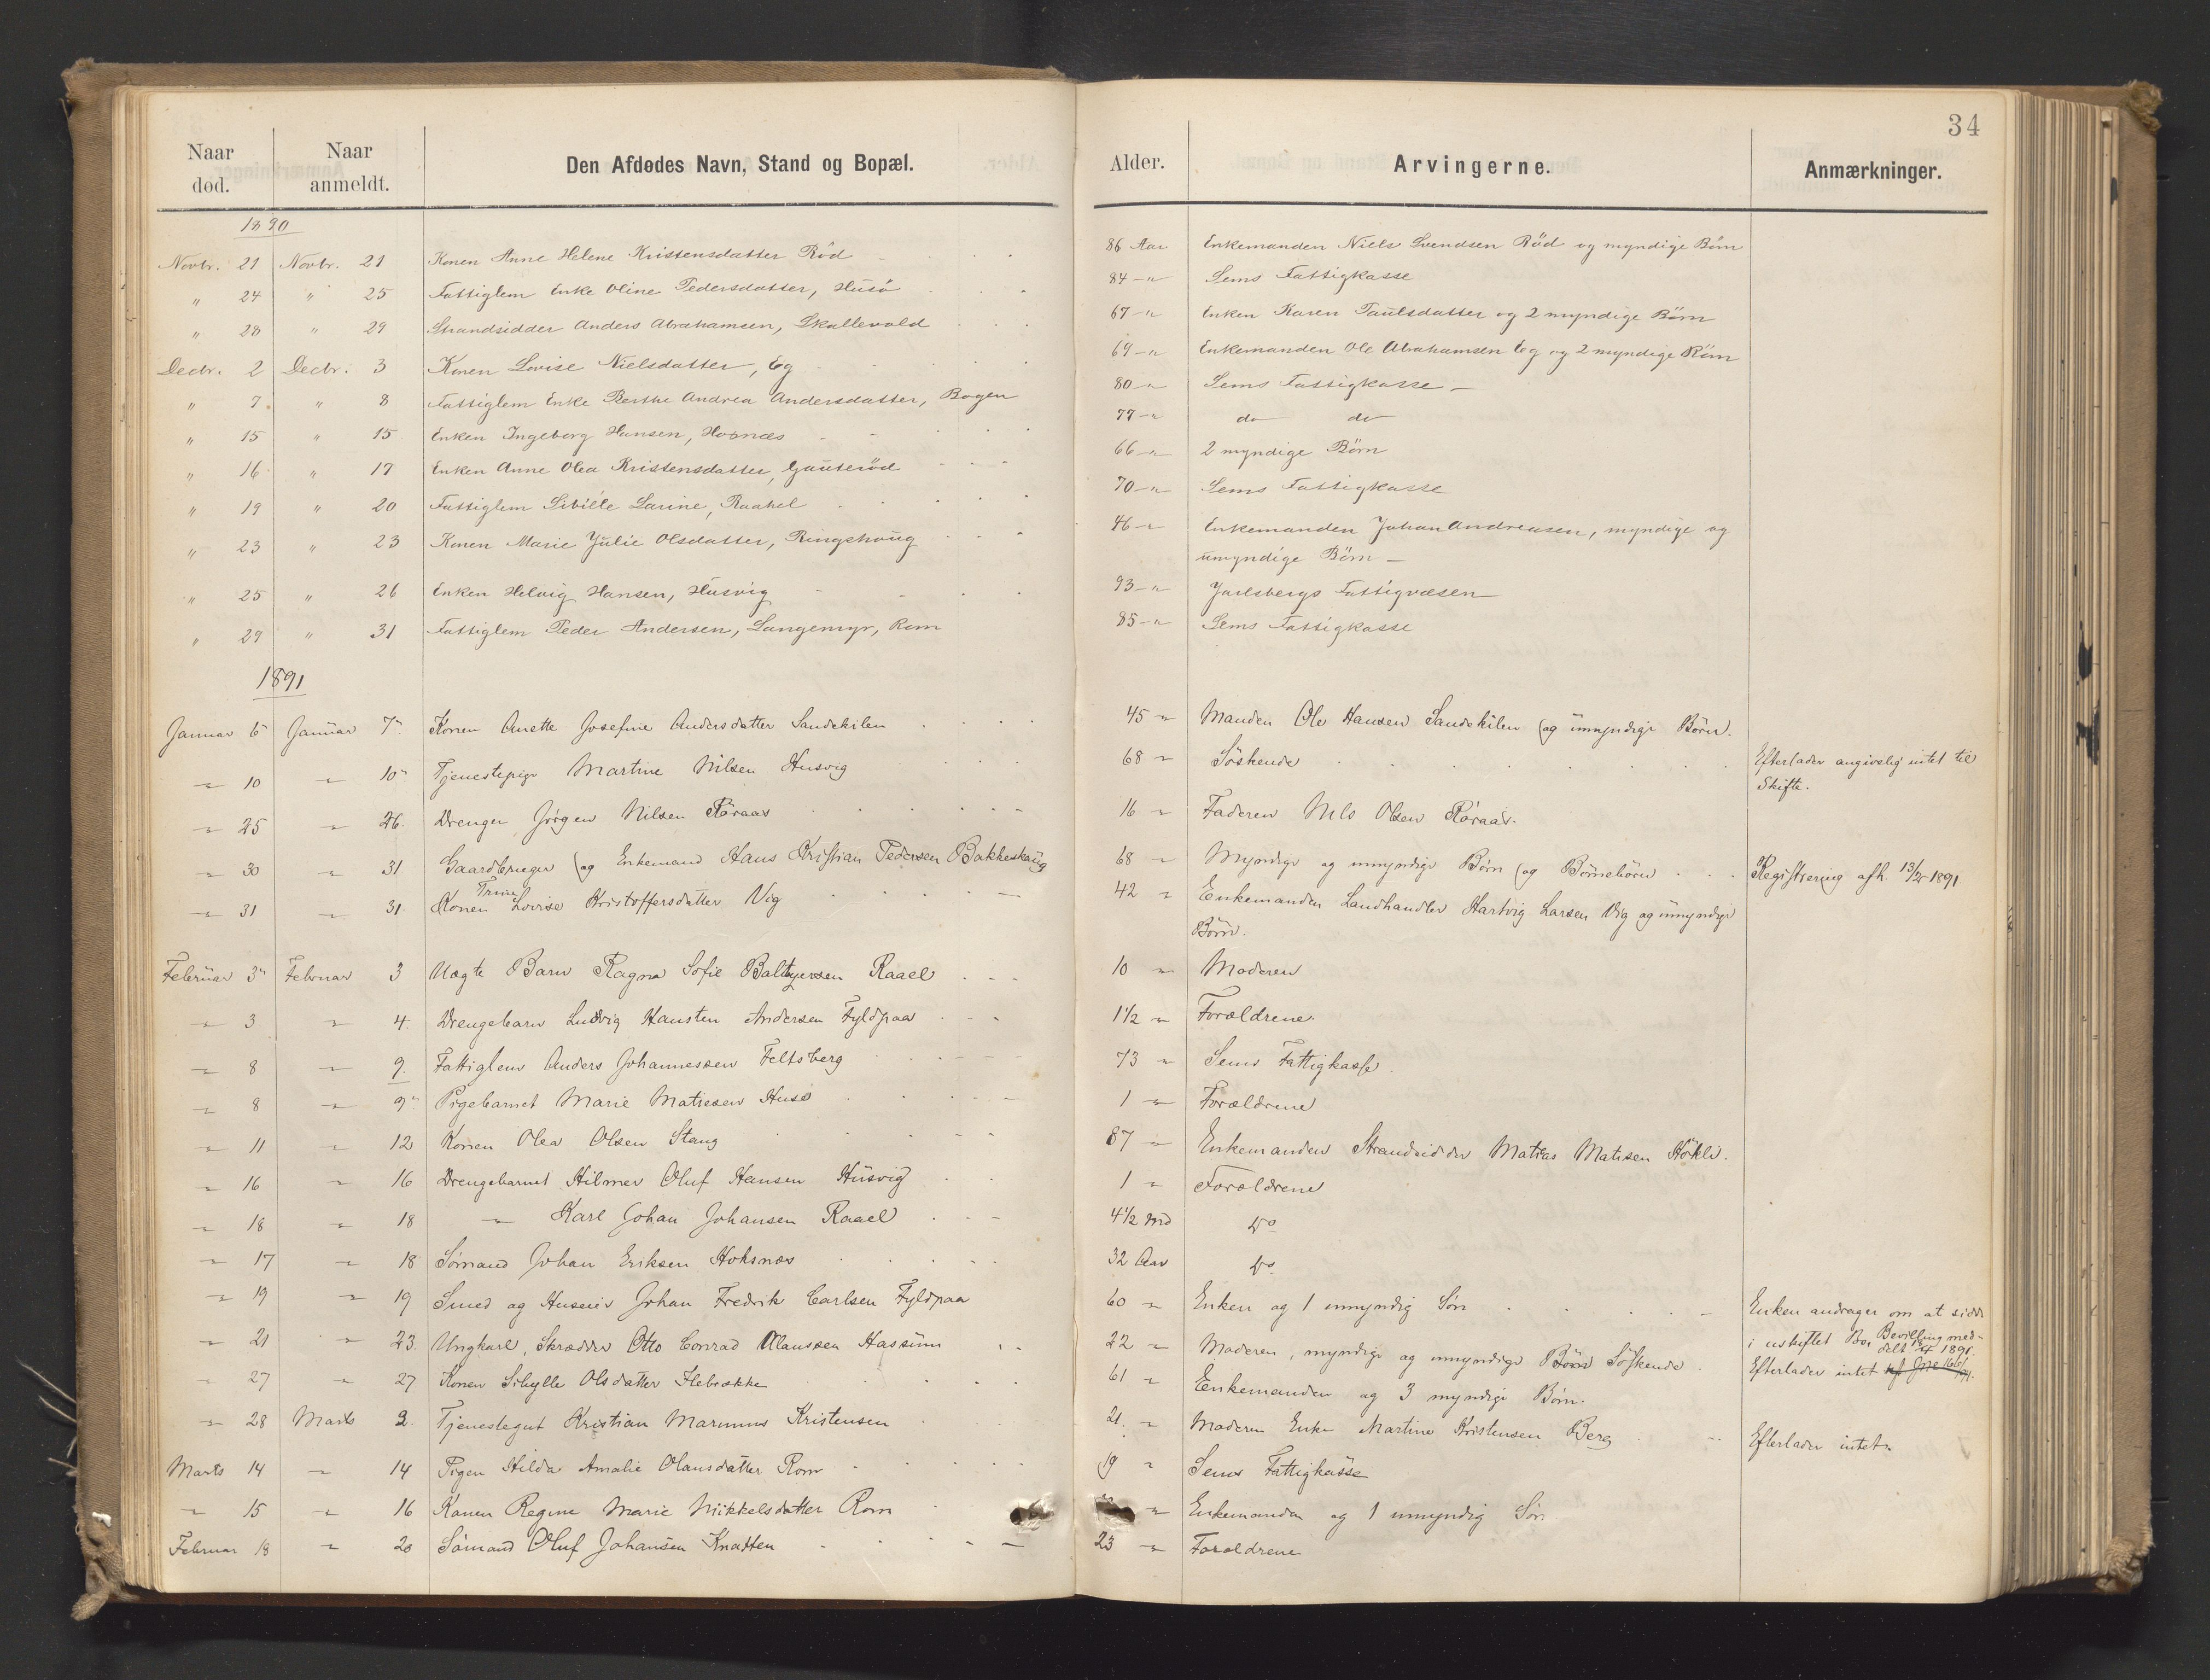 34
Naar død. Naar anmeldt. Den Afdødes Navn, Stand og Bopæl. Alder. Arvingerne. Anmærkninger.
1890
Novbr. 21 Novbr. 21 Konen Anne Helene Kristensdatter Röd 86 Aar Enkemanden Niels Svendsen Röd og myndige Börn
" 24 " 25 Fattiglem Enke Oline Pedersdatter, Husö 84 -"- Sems Fattigkasse
" 28 " 29 Strandsidder Anders Abrahamsen, Skallevold 67 -"- Enken Karen Paulsdatter og 2 myndige Börn
Decbr. 2 Decbr. 3 Konen Lovise Nielsdatter, Eg 69 -"- Enkemanden Ole Abrahamsen Eg og 2 myndige Börn
" 7 " 8 Fattiglem Enke Berthe Andrea Andersdatter, Bogen 80 -"- Sems Fattigkasse
" 15 " 15 Enken Ingeborg Hansen, 77 -"- do do
" 16 " 17 Enken Anne Olea Kristensdatter, Gauteröd 66 -"- 2 myndige Börn
" 19 " 20 Fattiglem Sibille Larine, Raahel 70 -"- Sems Fattigkasse
" 23 " 23 Konen Marie Julie Olsdatter, Ringshoug 46 -"- Enkemanden Johan Andreasen, myndige og
umyndige Börn
" 25 " 26 Enken Helvig Hansen, Husvig 93 -"- Jarlsbergs Fattigvæsen
" 29 " 31 Fattiglem Peder Andersen, Langemyr, Rom 85 -"- Sems Fattigkasse
1891
Januar 6 Januar 7 Konen Anette Josefine Andersdatter Sandekilen 45 " Manden Ole Hansen Sandekilen (og umyndige Börn.
" 10 " 10 Tjenestepige Martine Nilsen Husvig 68 " Söskende Efterlader angivelig intet til
Skifte.
" 25 " 26. Drengen Jörgen Nilsen Röraas 16 " Faderen Nils Olsen Röraas.
" 30 " 31 Gaardbruger (og Enkemand Hans Kristian Pedersen Bakkeskaug 68 " Myndige og umyndige Börn (og Börnebörn Registrering afh. 13/2 1891
" 31 " 31 Konen Trine Lovise Kristoffersdatter Vig 42 " Enkemanden Landhandler Hartvig Larsen Vig og umyndige
Börn.
Februar 3 Februar 3 Uægte Barn Ragna Sofie Baltzersen Raael 10 " Moderen
" 3 " 4. Drengebarn Ludvig Hansten Andersen Fyldpaa 1 1/2 " Forældrene.
" 8 " 9. Fattiglem Anders Johannessen Feltsberg 73 " Sems Fattigkasse.
" 8 " 9 Pigebarnet Marie Matiesen Husö 1 " Forældrene
" 11 " 12 Konen Olea Olsen Stang 87 " Enkemanden Strandsidder Matias Matisen Hökli.
" 16 " 16 Drengebarnet Hilmer Oluf Hansen Husvig 1 " Forældrene
" 18 " 18 " Karl Johan Johansen Raael 4 1/2 Md Do
" 17 " 18 Sömand Johan Eriksen Hoksnæs 32 Aar Do
" 19 " 19 Smed og Huseier Johan Fredrik Carlsen Fyldpaa 60 " Enken og 1 umyndig Sön Enken andrager om at sidde
i uskiftet Bo. Bevilling meddelt 1891.
" 21 " 23. Ungkarl, Skrædder Otto Conrad Olaussen Hassum 22 " Moderen, myndige og umyndige Börn Söskende. Efterlader intet
" 27 " 27 Konen Sibylle Olsdatter Flebække 61 " Enkemanden og 3 myndige Börn.
" 28 Marts 2. Tjenestegut Kristian Marinius Kristensen 21. " Moderen Enke Martine Kristensen Berg Efterlader intet
Marts 14 " 14 Pigen Hilda Amalie Olausdatter Rom 19 " Sems Fattigkasse
" 15 " 16 Konen Regine Marie Mikkelsdatter Rom " Enkemanden og 1 umyndig Sön
Februar 18 " 20 Sömand Oluf Johansen Knatten 23 " Forældrene